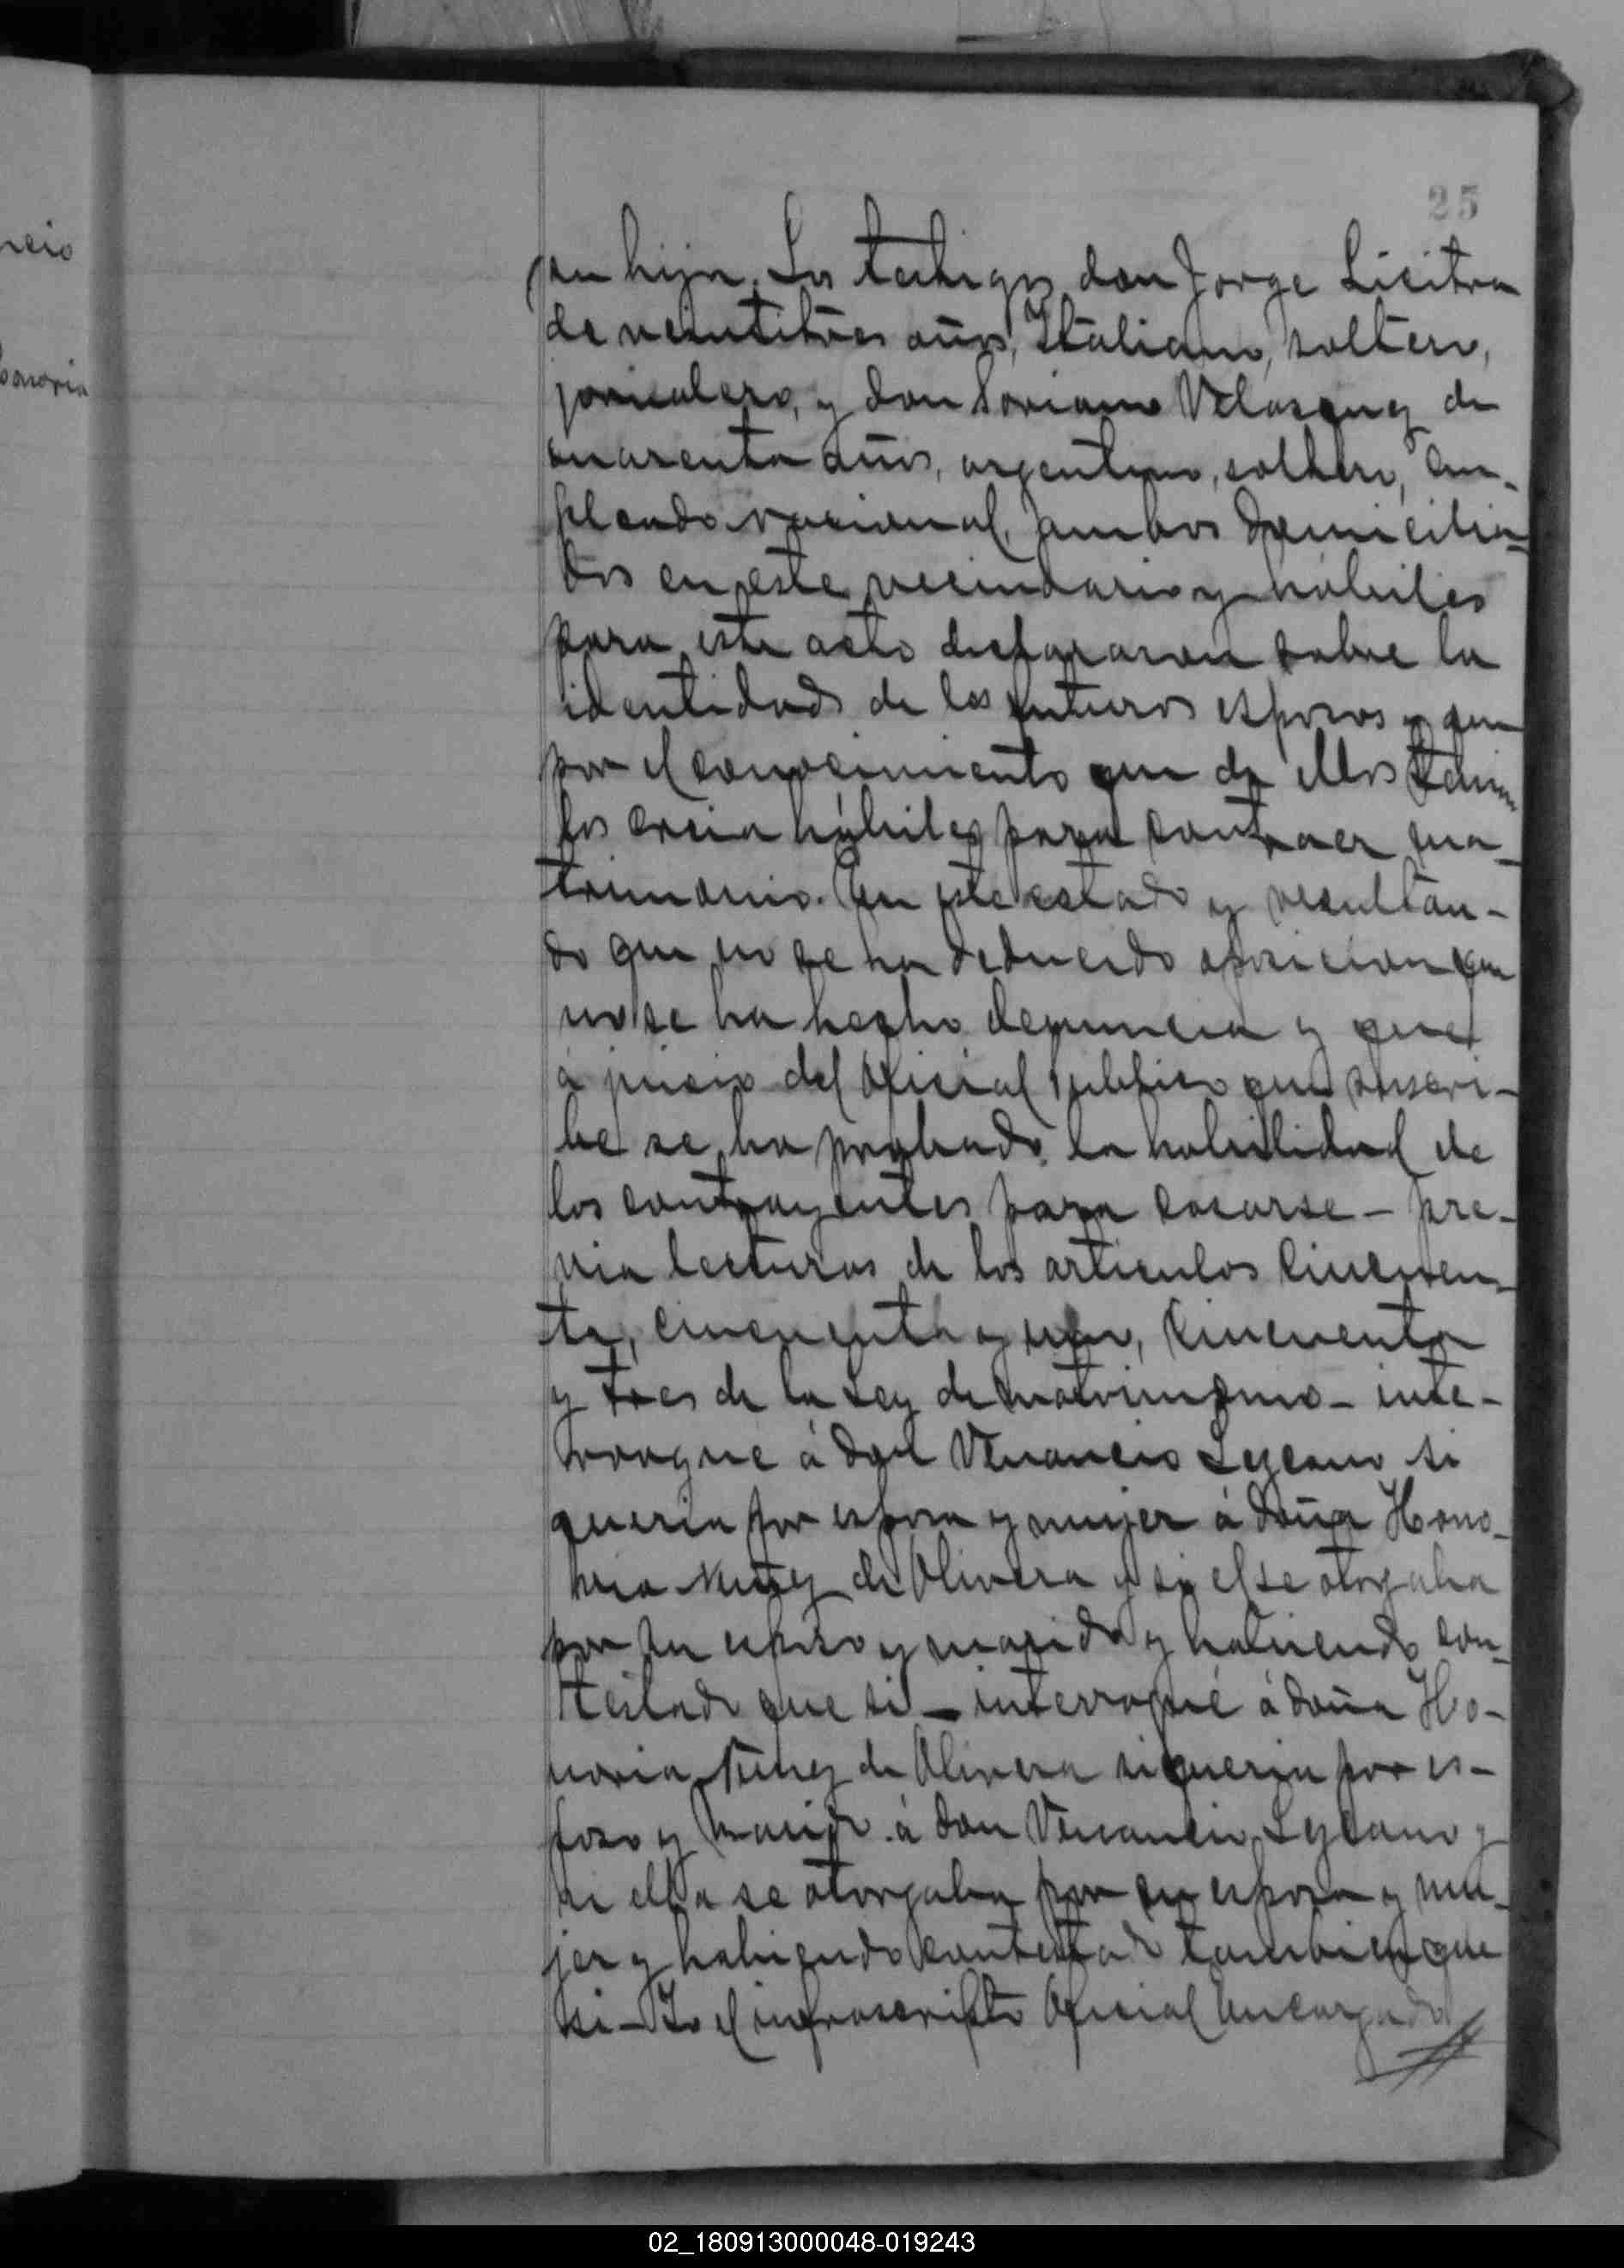 25
ncio
onoria
su hija. Los testigos don Jorge Licitra
de veintitres años, Italiano, soltero,
jornalero, y don Soriano Velasquez de
cuarenta años, argentino, soltero, em-
pleado nacional, ambos domicilia-
dos en este vecindario y hábiles
para este acto declararon sobre la
identidad de los futuros esposos y que
por el conocimiento que de ellos tenian
los creia hábiles para contraer ma-
trimonio. En este estado y resultan-
do que no se ha deducido oposicion que
no se ha hecho denuncia y que
á juicio del Oficial Publico que suscri-
be se ha probado la habilidad de
los contrayentes para casarse - pre-
via lecturas de los articulos cincuen-
ta, cincuenta y uno, cincuenta
y tres de la Ley de matrimonio - inte-
rrogué á don Venancio Lezcano si
queria por esposa y mujer á doña Hono-
ria Nuñez de Olivera y si el se otorgaba
por su esposo y marido y habiendo con-
testado que si - interrogué á doña Ho-
noria Nuñez de Olivera si queria por es-
poso y marido á don Venancio Lezcano y
si ella se otorgaba por su esposa y mu-
jer y habiendo contestado tambien que
si - Yo el infrascripto Oficial Encargado
02_180913000048-019243